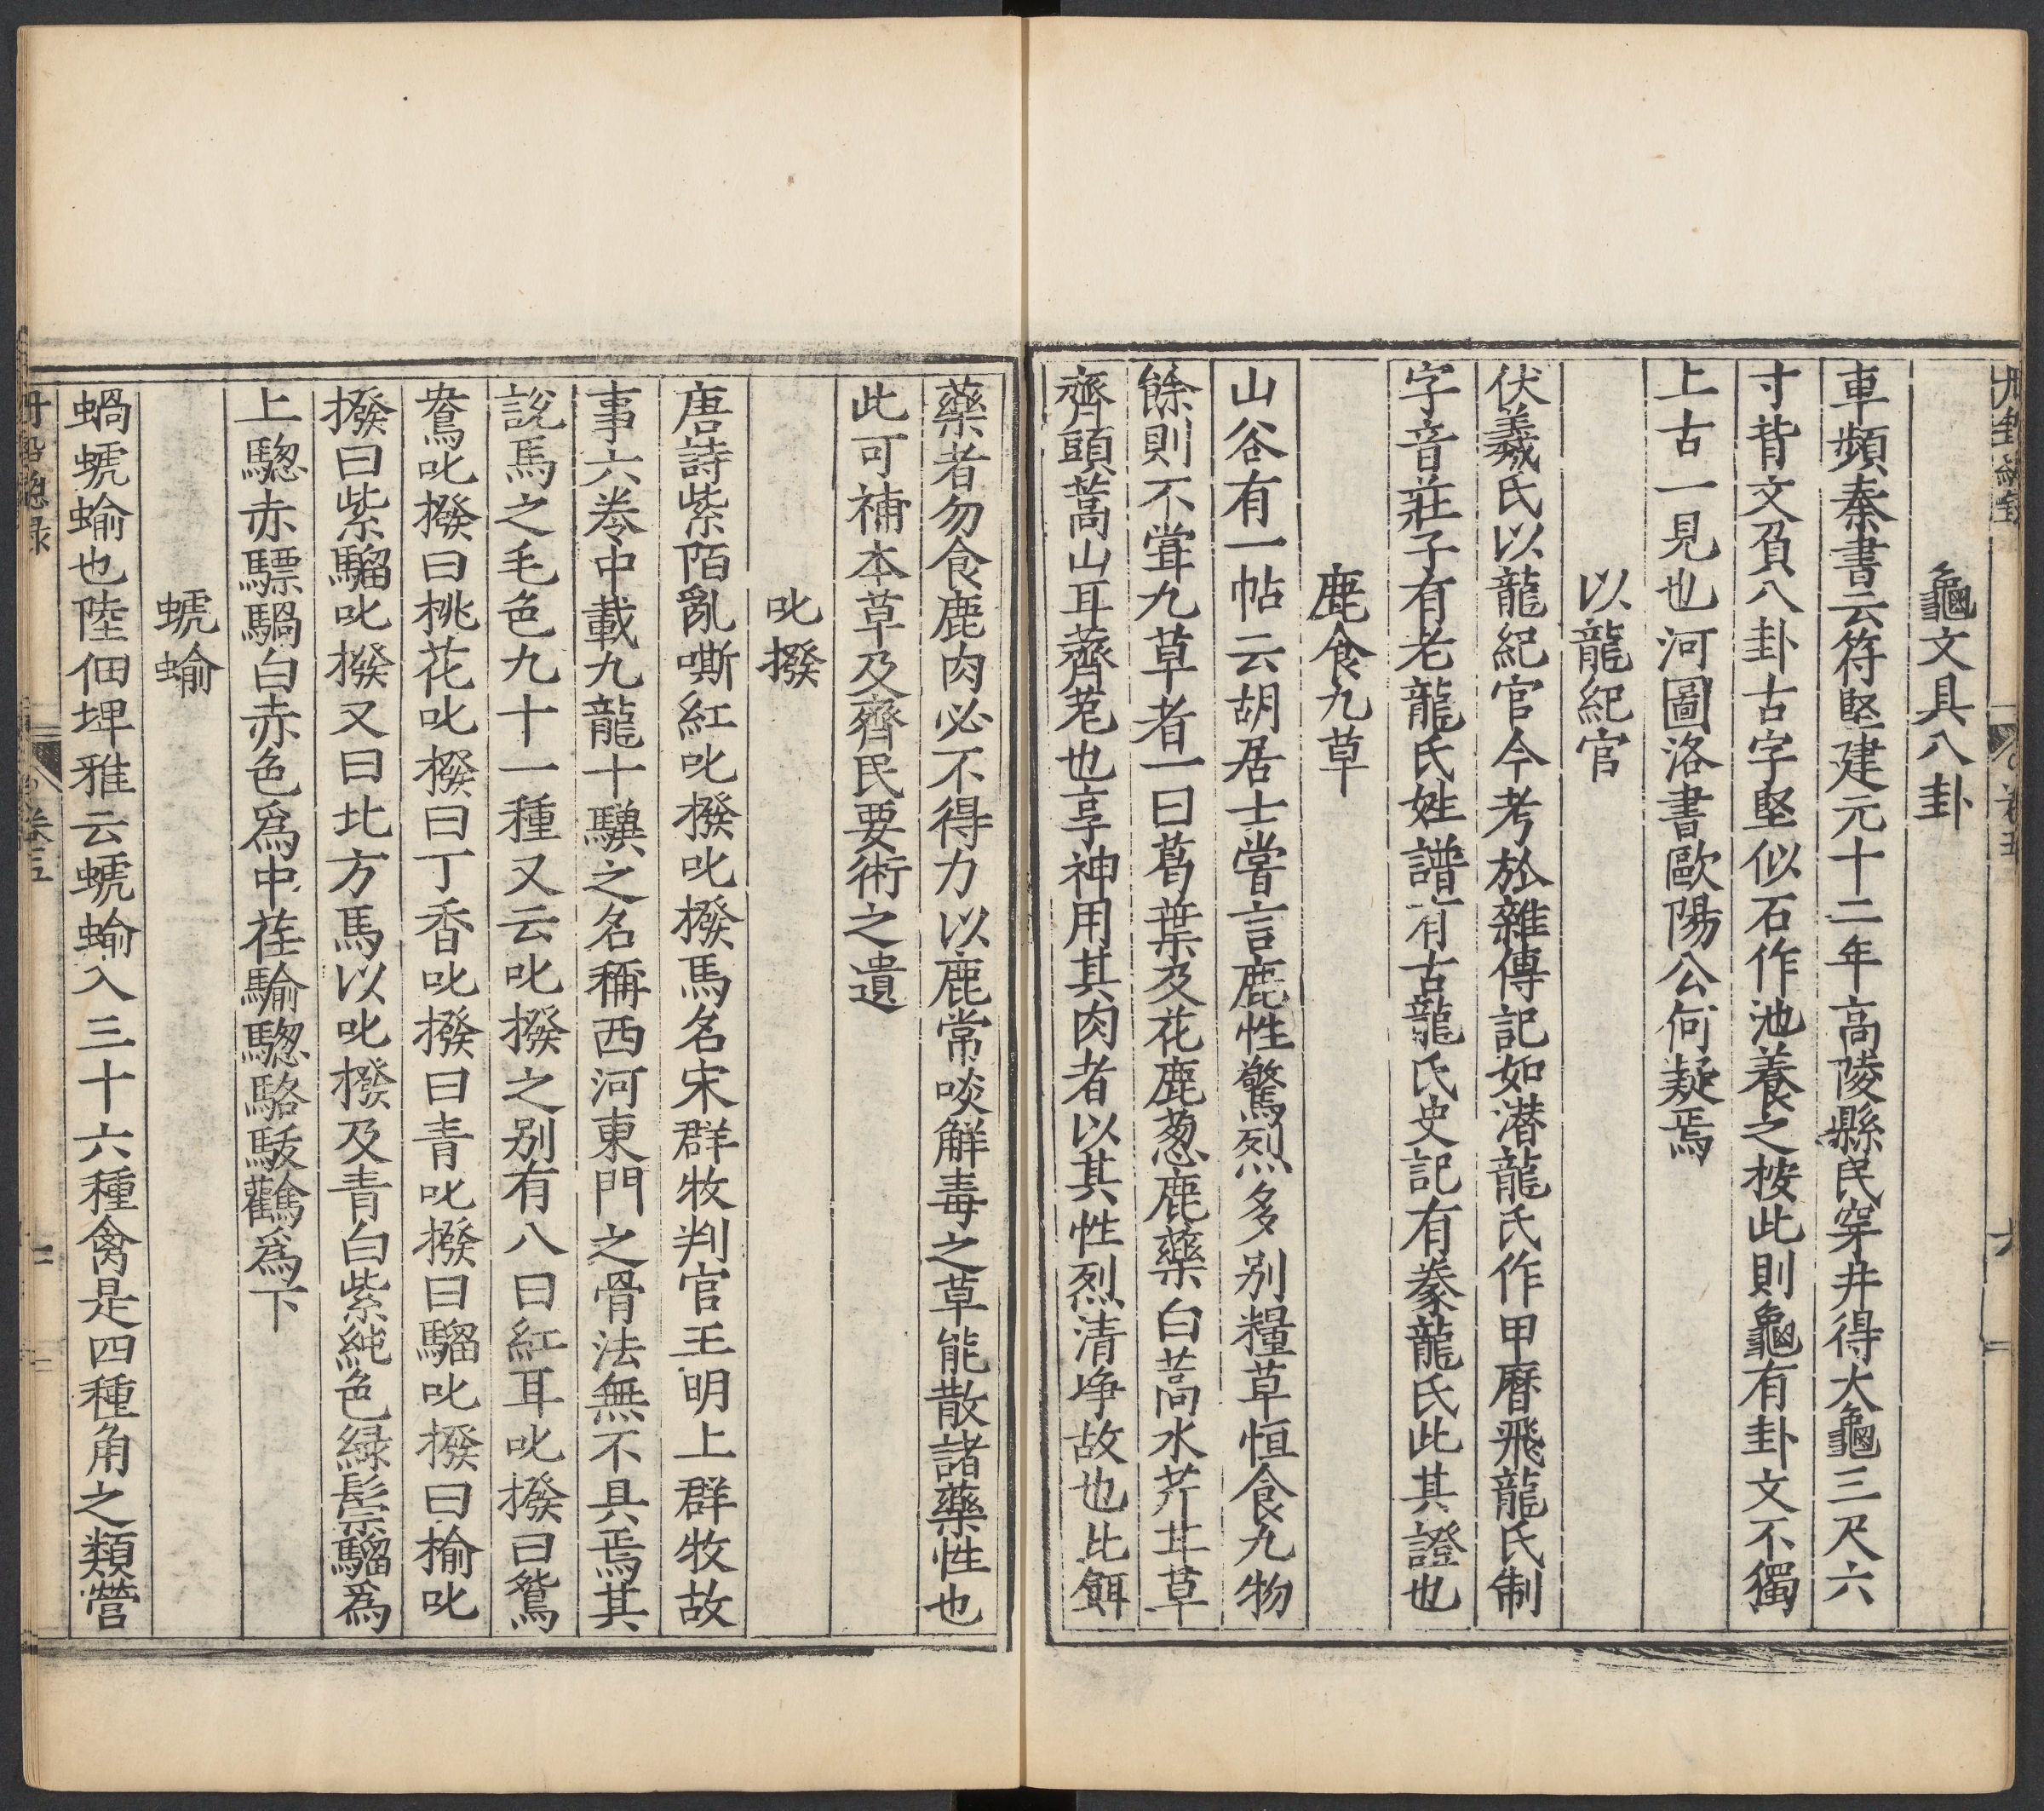 龜文具八卦
車頻秦書云符堅建元十二年高陵縣民穿井得大龜三尺六
寸背文負八卦古字堅似石作池養之按此則龜有卦文不獨
上古一見也河圖洛書歐陽公何疑焉
以龍紀官
伏羲氏以龍紀官今考於雜傳記如潜龍氏作甲曆飛龍氏制
字音莊子有老龍氏姓譜有古龍氏史記有豢龍氏此其證也
鹿食九草
山谷有一帖云胡居士嘗言鹿性驚烈多别糧草恒食九物
餘則不甞九草者一曰葛葉及花鹿葱鹿藥白蒿水芹甘草
齊頭蒿山耳薺苨也享神用其肉者以其性烈清净故也比餌
藥者勿食鹿肉必不得力以鹿常啖解毒之草能散諸藥性也
此可補本草及齊民要術之遺
叱撥
唐詩紫陌亂嘶紅叱撥叱撥馬名宋群牧判官王明上群牧故
事六卷中載九龍十驥之名稱西河東門之骨法無不具焉其
說馬之毛色九十一種又云叱撥之别有八曰紅耳叱撥曰鴛
鴦叱撥曰桃花叱撥曰丁香叱撥曰青叱撥曰騮叱撥曰榆叱
撥曰紫騮叱撥又曰北方馬以叱撥及青白紫純色緑鬃騮爲
上驄赤驃騧白赤色爲中荏騟驄駱駁鸛爲下
螔蝓
蝸螔蝓也陸佃埤雅云螔蝓入三十六種禽是四種角之類營
丹鉛總録
卷五